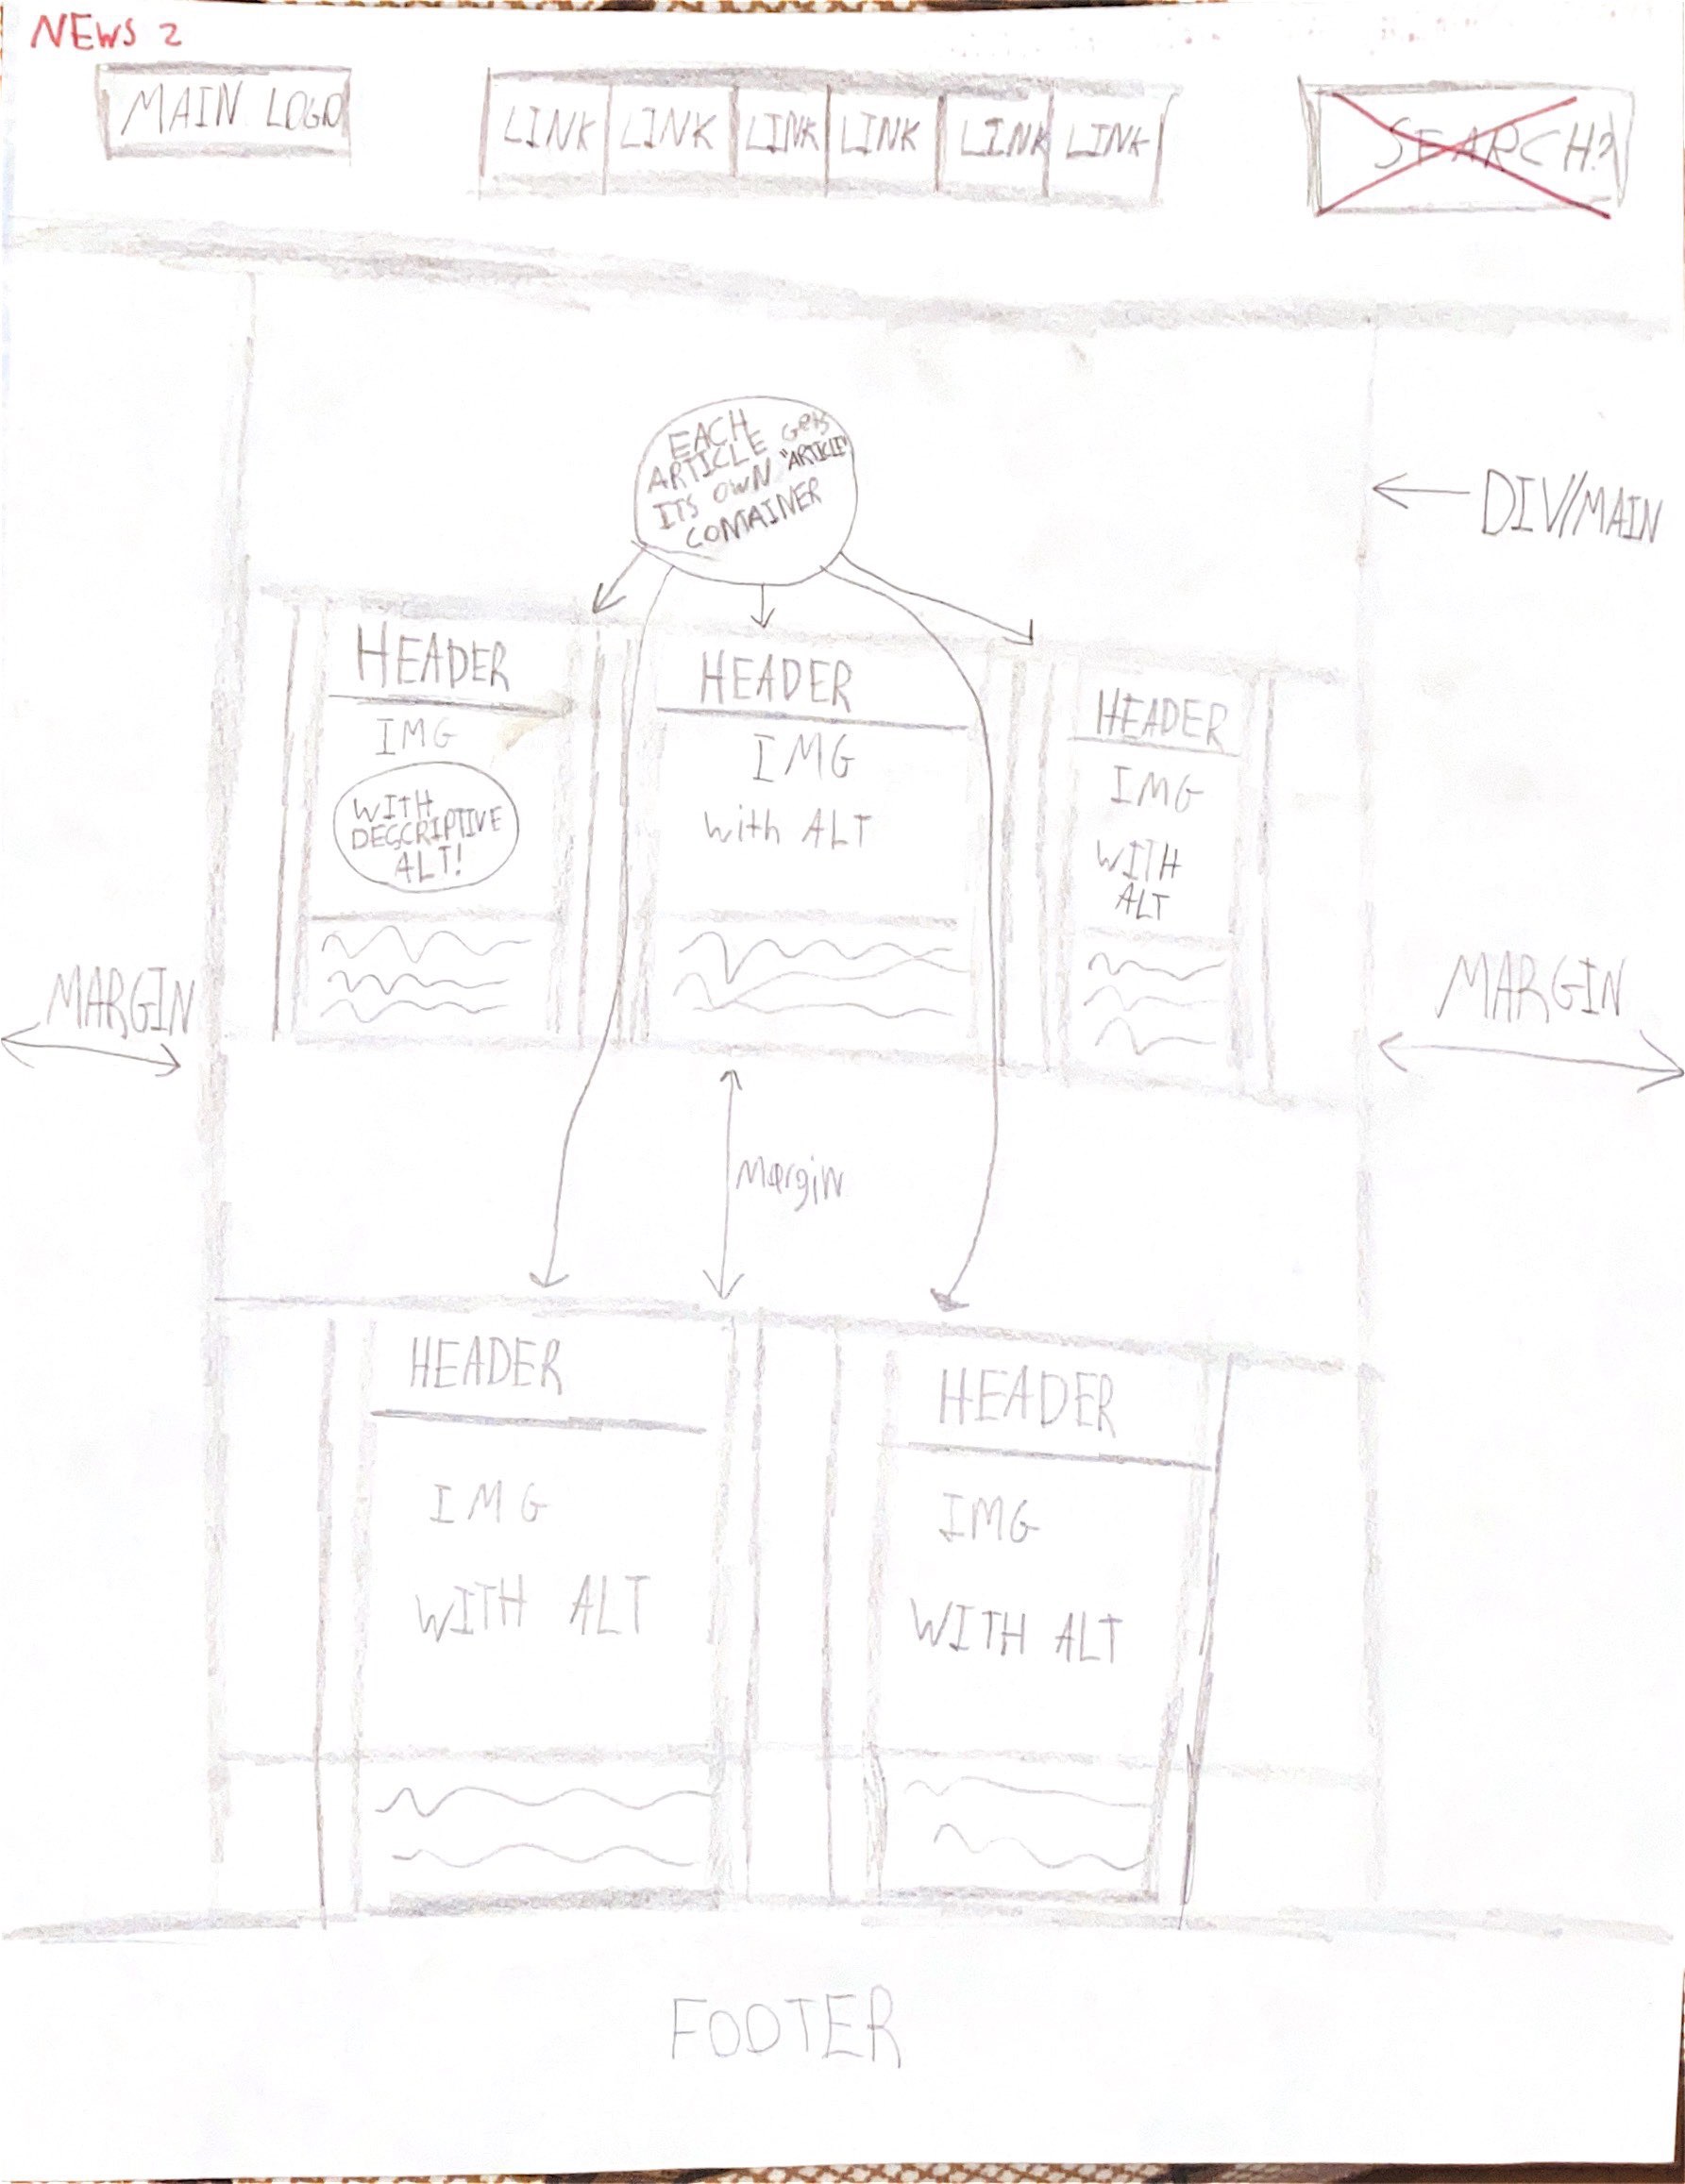 NEWS 2
MAIN LOGO
LINK LINK LINK LINK LINK LINK
SEARCH?
EACH
ARTICLE Gets
ITS OWN "ARTICLE"
CONTAINER
← DIV/MAIN
HEADER
IMG
WITH
DESCRIPTIVE
ALT!
HEADER
IMG
with ALT
HEADER
IMG
WITH
ALT
MARGIN
MARGIN
Margin
HEADER
IMG
WITH ALT
HEADER
IMG
WITH ALT
FOOTER